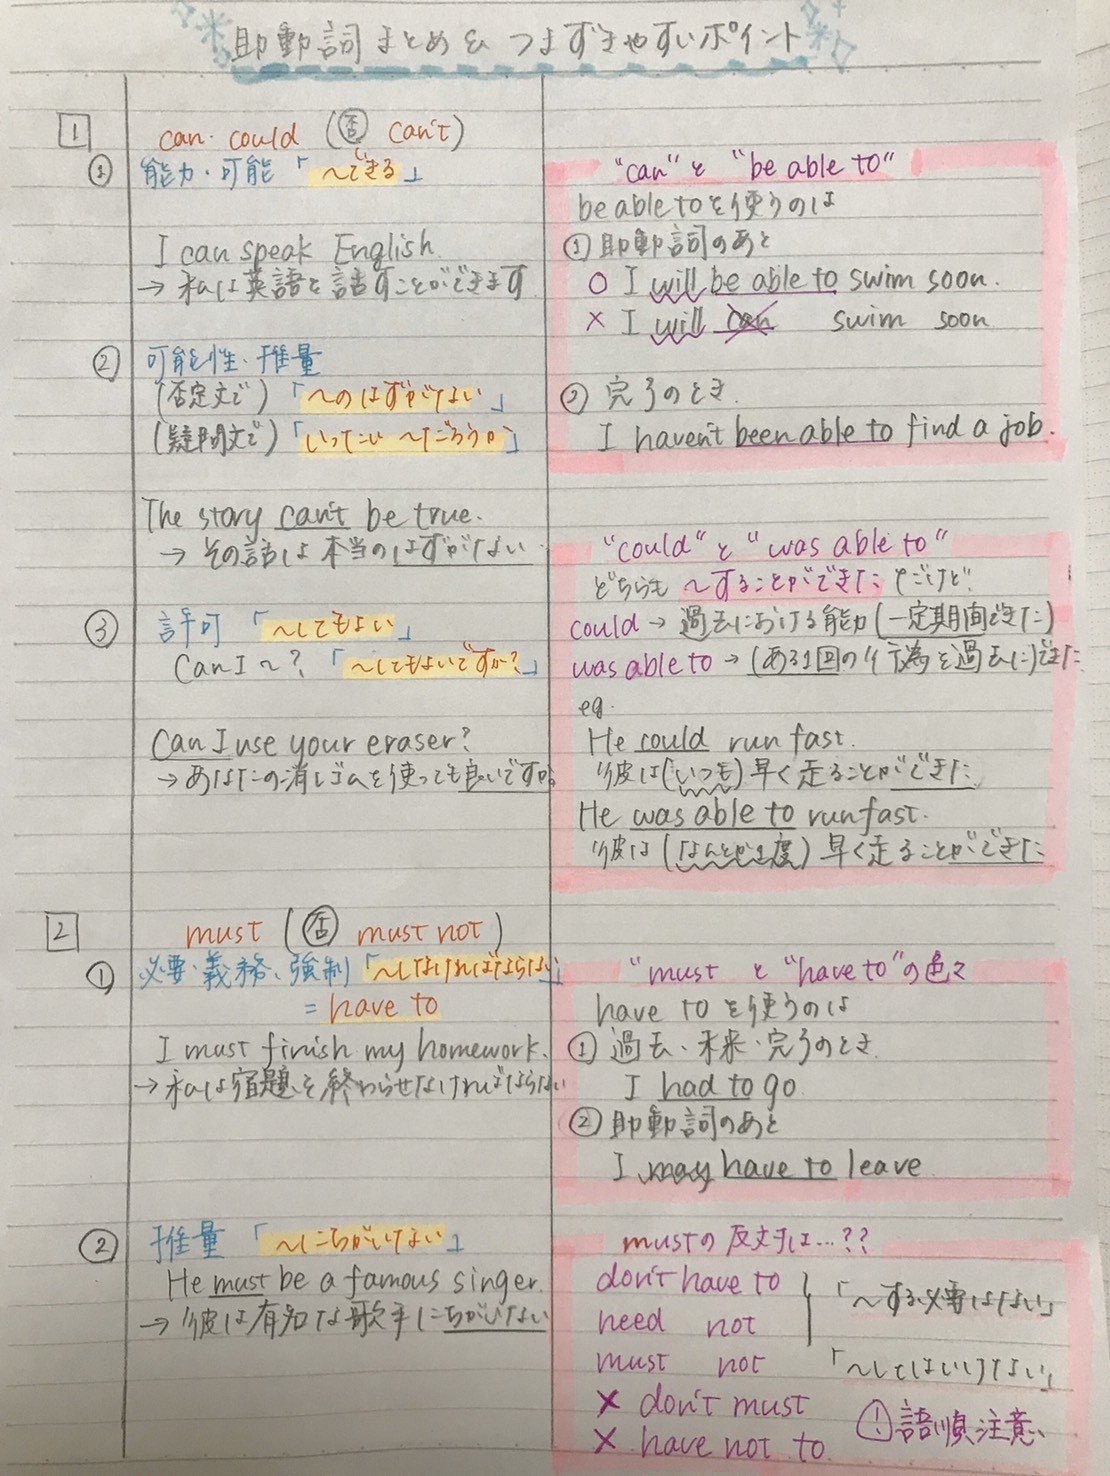 助動詞まとめ& つまずきやすいポイント
1 can・could (否 can't)
① 能力・可能「〜できる」
I can speak English.
→ 私は英語を話すことができます
② 可能性・推量
(否定文で)「〜のはずがない」
(疑問文で)「いったい〜だろうか」
The story can't be true.
→ その話は本当のはずがない
③ 許可「〜してもよい」
Can I 〜?「〜してもよいですか?」
Can I use your eraser?
→ あなたの消しゴムを使っても良いですか
"can" と "be able to"
be able to を使うのは
① 助動詞のあと
○ I will be able to swim soon.
× I will can swim soon
② 完了のとき.
I haven't been able to find a job.
"could" と "was able to"
どちらも 〜することができた だけど
could → 過去における能力(一定期間できた)
was able to → (ある1回の行為を過去に)できた
eg.
He could run fast.
彼は(いつも)早く走ることができた
He was able to run fast.
彼は(なんとか1度)早く走ることができた
2 must (否 must not)
① 必要・義務・強制「〜しなければならない」
= have to
I must finish my homework.
→ 私は宿題を終わらせなければならない
② 推量「〜にちがいない」
He must be a famous singer.
→ 彼は有名な歌手にちがいない
"must と "have to" の色々
have to を使うのは
① 過去・未来・完了のとき
I had to go.
② 助動詞のあと
I may have to leave.
mustの反対は…??
don't have to
need not 「〜する必要はない」
must not 「〜してはいけない」
× don't must
× have not to
! 語順注意